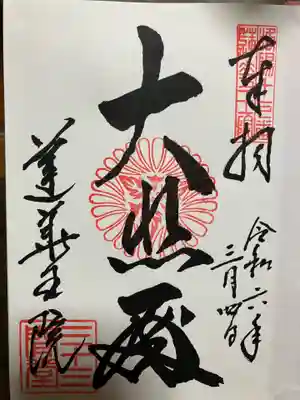 奉拝
令和六年
三月四日
大悲殿
蓮華王院